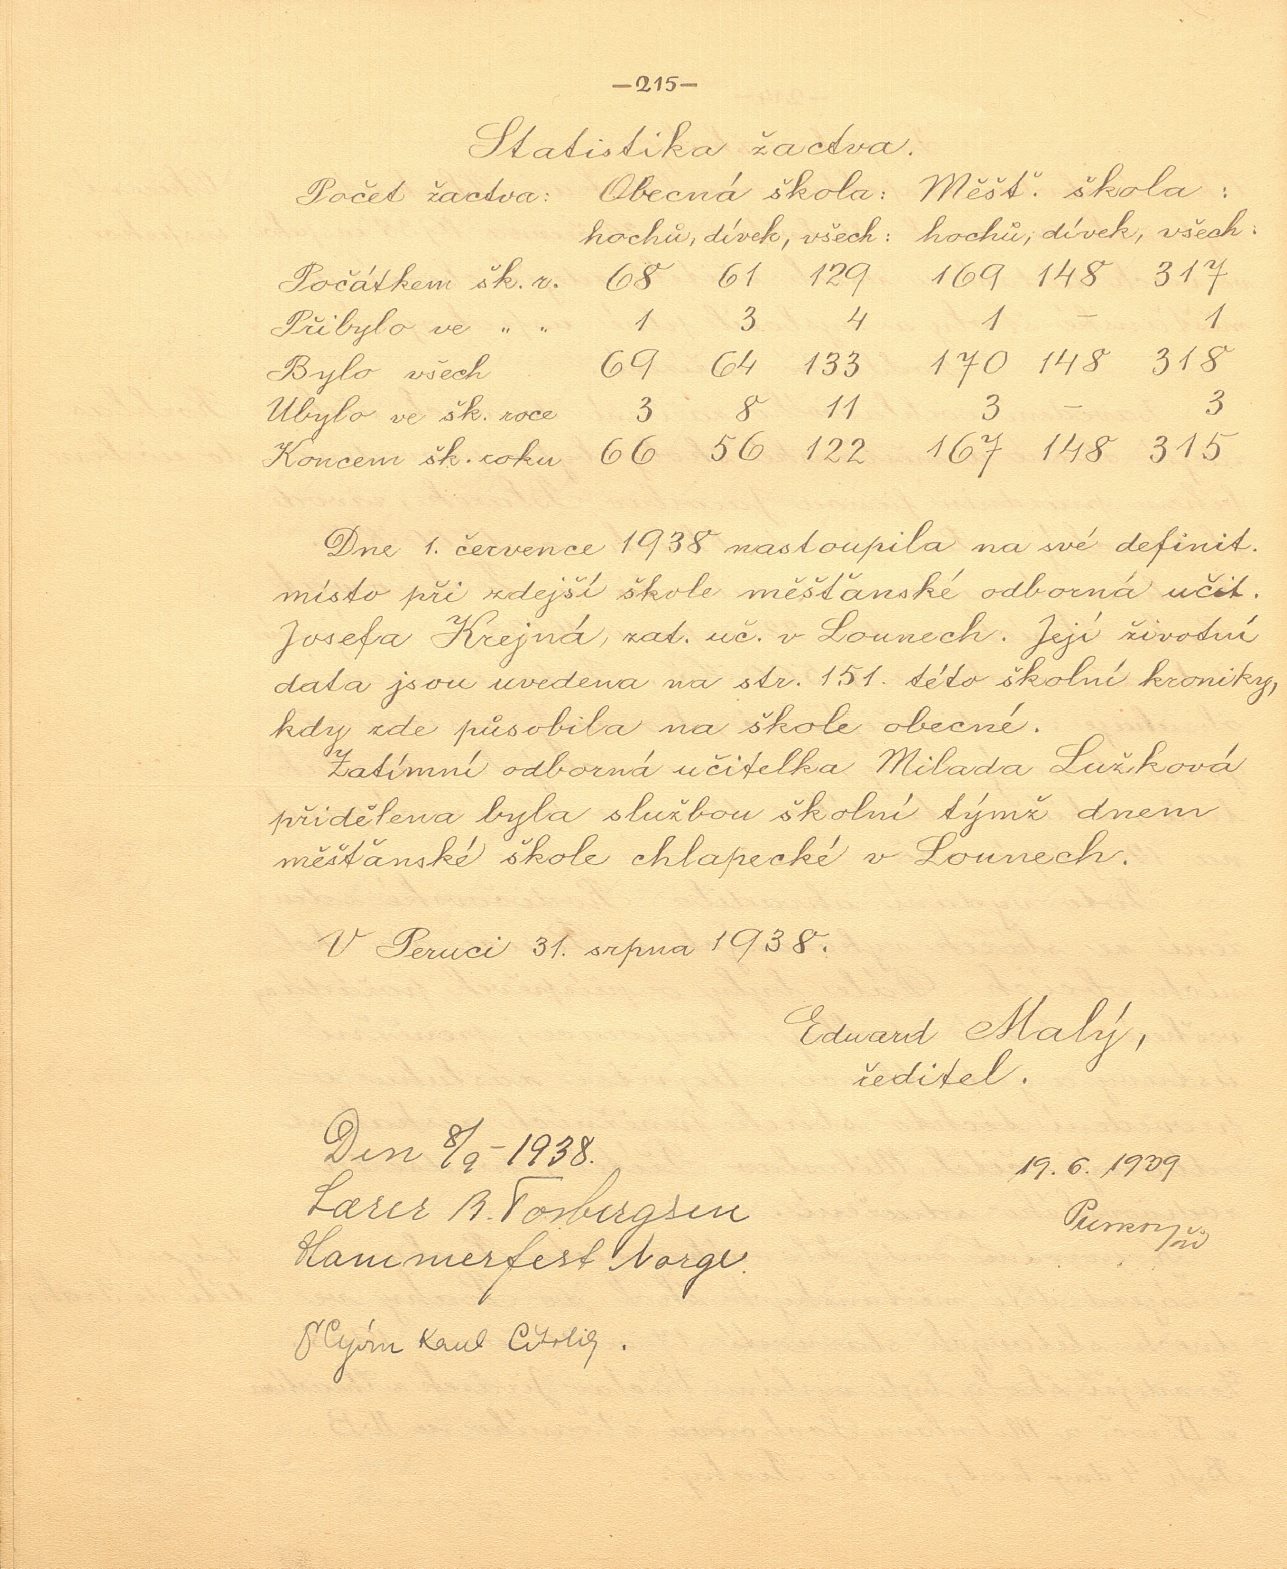 –215–
Statistika žactva.
Počet žactva: Obecná škola: Měšť. škola :
hochů, dívek, všech: hochů, dívek, všech:
Počátkem šk. r. 68 61 129 169 148 317
Přibylo ve " " 1 3 4 1 – 1
Bylo všech 69 64 133 170 148 318
Ubylo ve šk. roce 3 8 11 3 – 3
Koncem šk. roku 66 56 122 167 148 315
Dne 1. července 1938 nastoupila na své definit.
místo při zdejší škole měšťanské odborná učit.
Josefa Krejná, zat. uč. v Lounech. Její životní
data jsou uvedena na str. 151. této školní kroniky,
kdy zde působila na škole obecné.
Zatímní odborná učitelka Milada Lužková
přidělena byla službou školní týmž dnem
měšťanské škole chlapecké v Lounech.
V Peruci 31. srpna 1938.
Eduard Malý,
ředitel.
Den 8/9 – 1938.
19. 6. 1939
Lærer R. Torbergsen
Hammerfest Norge.
Karel